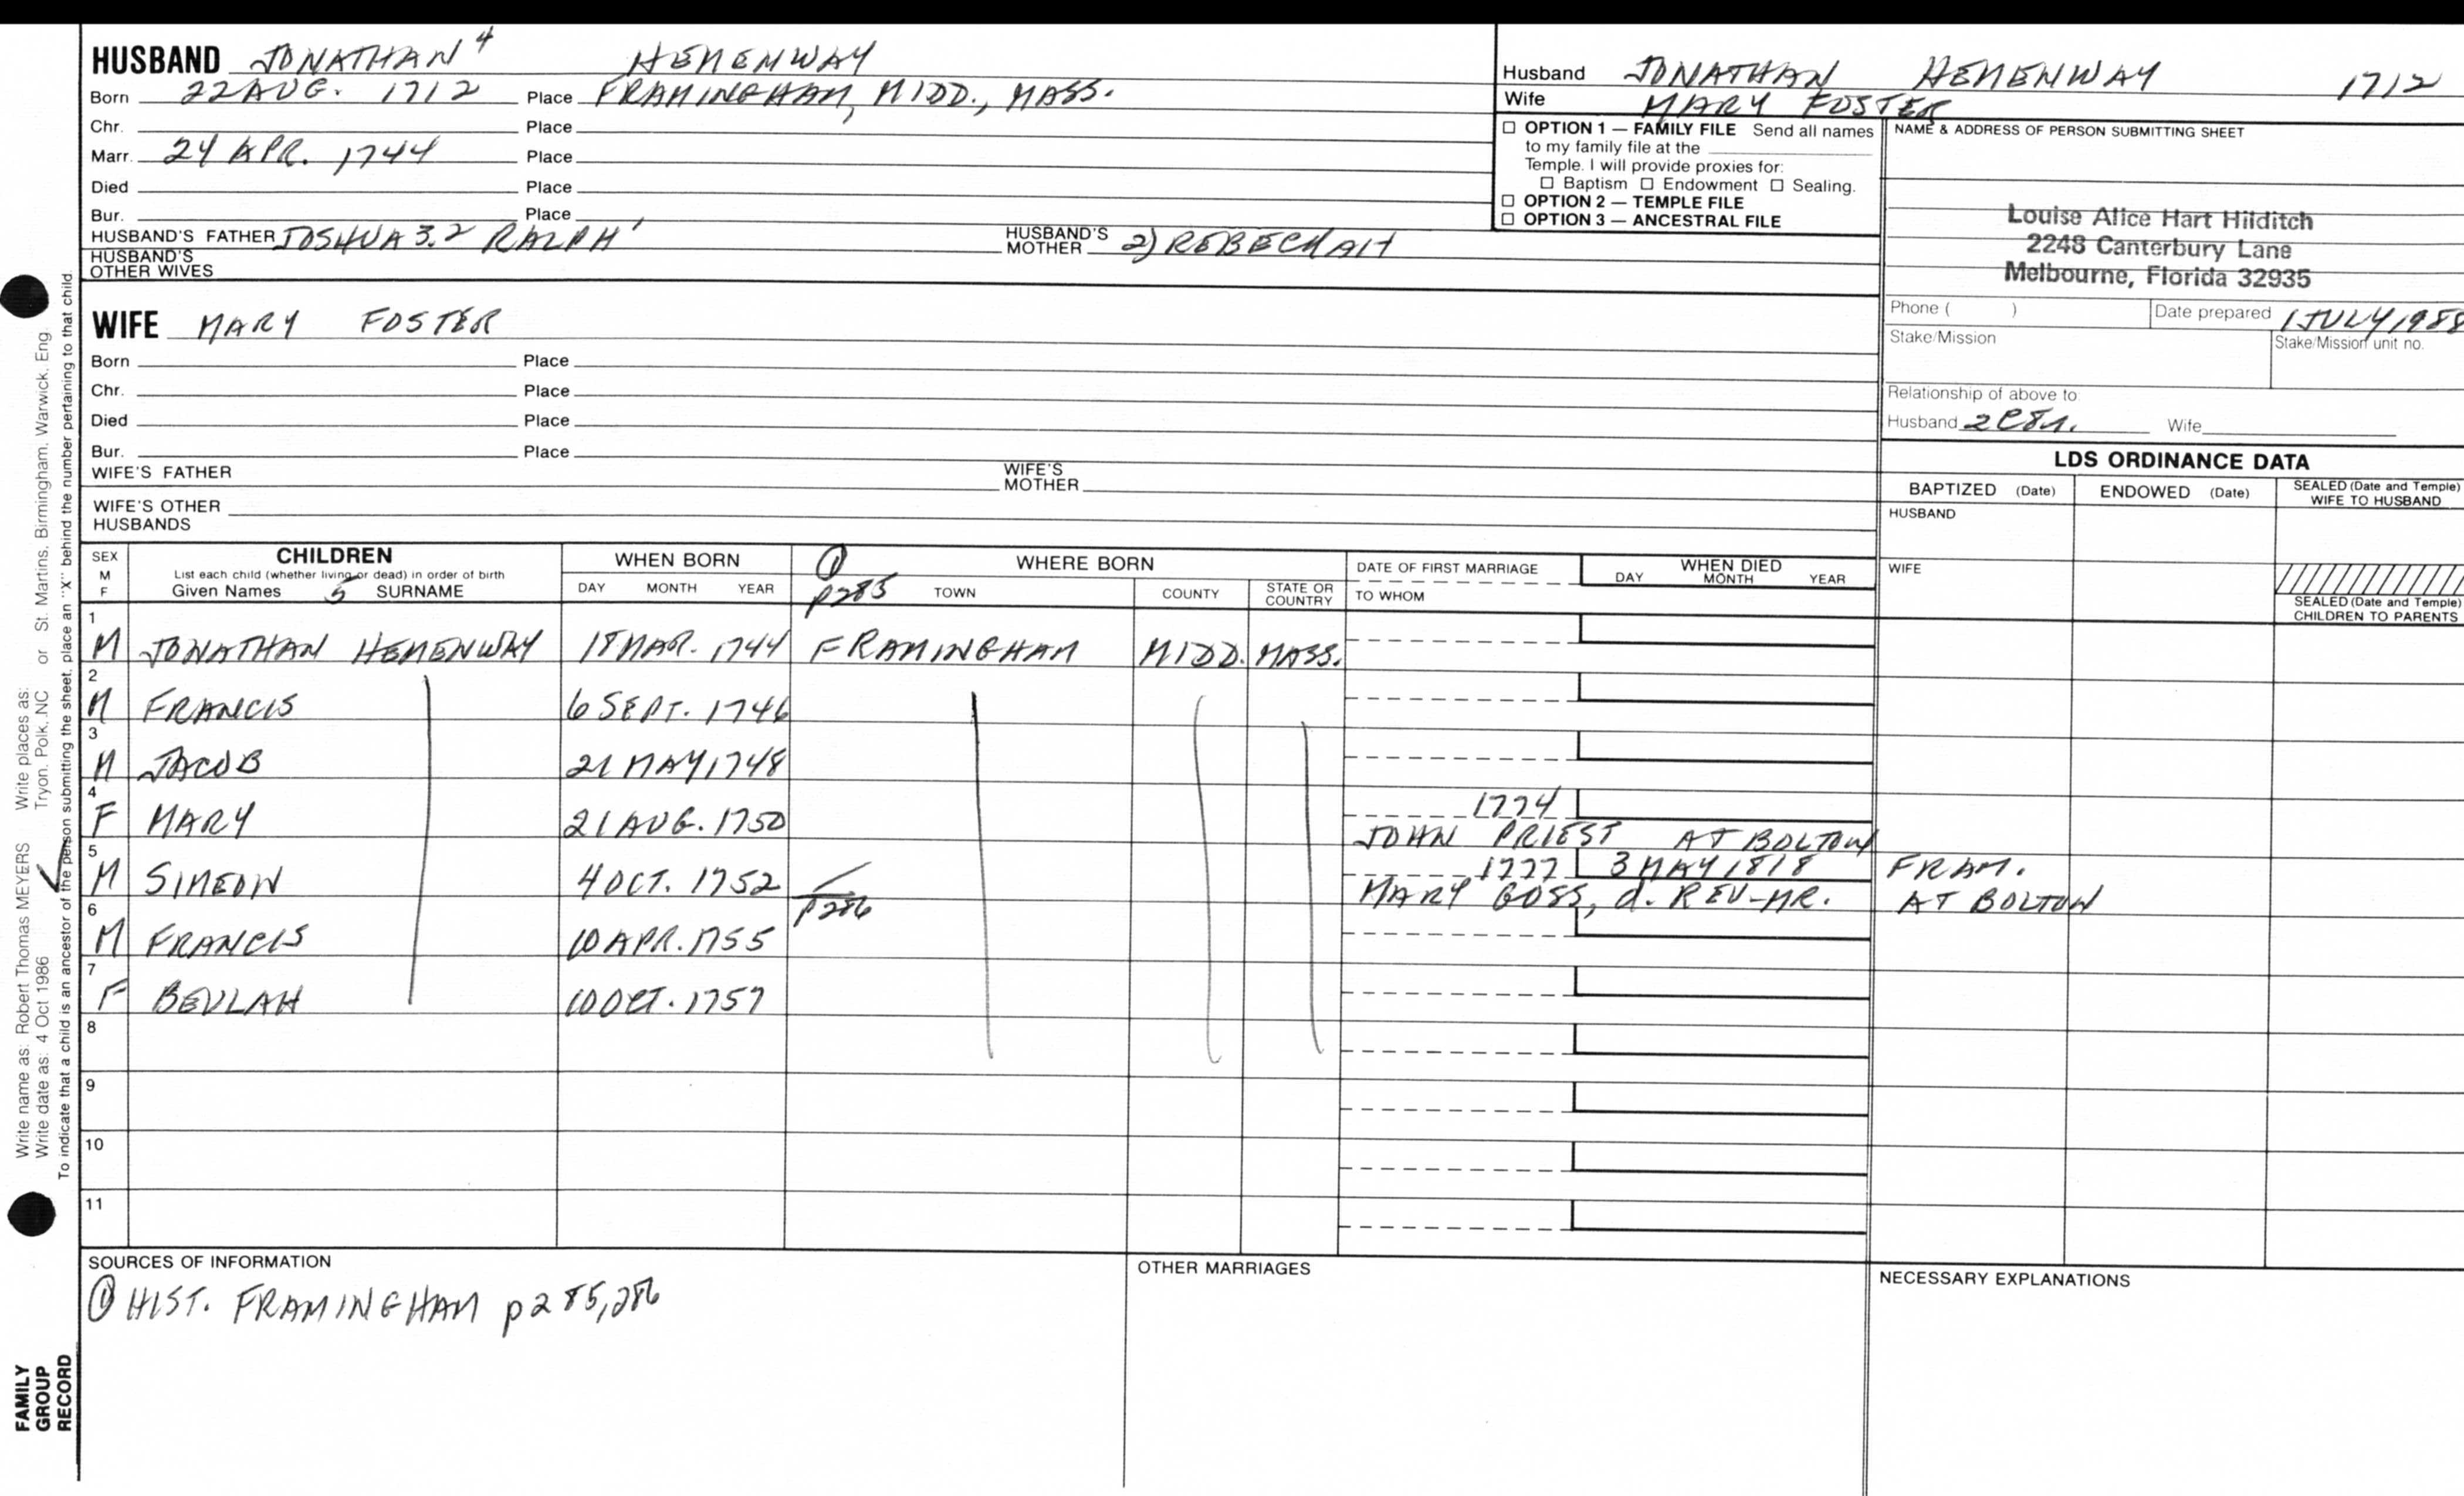 HUSBAND JONATHAN 4 HEMENWAY
Born 22 AUG. 1712 Place FRAMINGHAM, MIDD., MASS.
Chr. Place
Marr. 24 APR. 1744 Place
Died Place
Bur. Place
HUSBAND'S FATHER JOSHUA 3,2 RALPH 1 HUSBAND'S MOTHER 2) REBECKAH
HUSBAND'S OTHER WIVES
Husband JONATHAN HEMENWAY 1712
Wife MARY FOSTER
☐ OPTION 1 — FAMILY FILE Send all names
to my family file at the
Temple. I will provide proxies for:
☐ Baptism ☐ Endowment ☐ Sealing.
☐ OPTION 2 — TEMPLE FILE
☐ OPTION 3 — ANCESTRAL FILE
NAME & ADDRESS OF PERSON SUBMITTING SHEET
Louise Alice Hart Hilditch
2248 Canterbury Lane
Melbourne, Florida 32935
Phone ( ) Date prepared 1 JULY 1988
Stake/Mission Stake/Mission unit no.
Relationship of above to
Husband Wife
WIFE MARY FOSTER
Born Place
Chr. Place
Died Place
Bur. Place
WIFE'S FATHER WIFE'S MOTHER
WIFE'S OTHER HUSBANDS
LDS ORDINANCE DATA
BAPTIZED (Date) ENDOWED (Date) SEALED (Date and Temple) WIFE TO HUSBAND
HUSBAND
WIFE
SEALED (Date and Temple) CHILDREN TO PARENTS
SEX M F
CHILDREN
List each child (whether living or dead) in order of birth
Given Names 5 SURNAME
WHEN BORN
DAY MONTH YEAR
① p285
WHERE BORN
TOWN COUNTY STATE OR COUNTRY
DATE OF FIRST MARRIAGE
TO WHOM
WHEN DIED
DAY MONTH YEAR
1 M JONATHAN HEMENWAY 18 MAR. 1744 FRAMINGHAM MIDD. MASS.
2 M FRANCIS 6 SEPT. 1746
3 M JACOB 21 MAY 1748
4 F MARY 21 AUG. 1750 1774
JOHN PRIEST AT BOLTON
5 M SIMEON 4 OCT. 1752 1777 3 MAY 1818 FRAM.
p286 MARY GOSS, d. REV-MR. AT BOLTON
6 M FRANCIS 10 APR. 1755
7 F BEULAH 10 OCT. 1757
8
9
10
11
SOURCES OF INFORMATION
① HIST. FRAMINGHAM p 285,286
OTHER MARRIAGES
NECESSARY EXPLANATIONS
Write name as: Robert Thomas MEYERS Write places as:
Write date as: 4 Oct 1986 Tryon, Polk, NC or St. Martins, Birmingham, Warwick, Eng.
To indicate that a child is an ancestor of the person submitting the sheet, place an "X" behind the number pertaining to that child
FAMILY
GROUP
RECORD